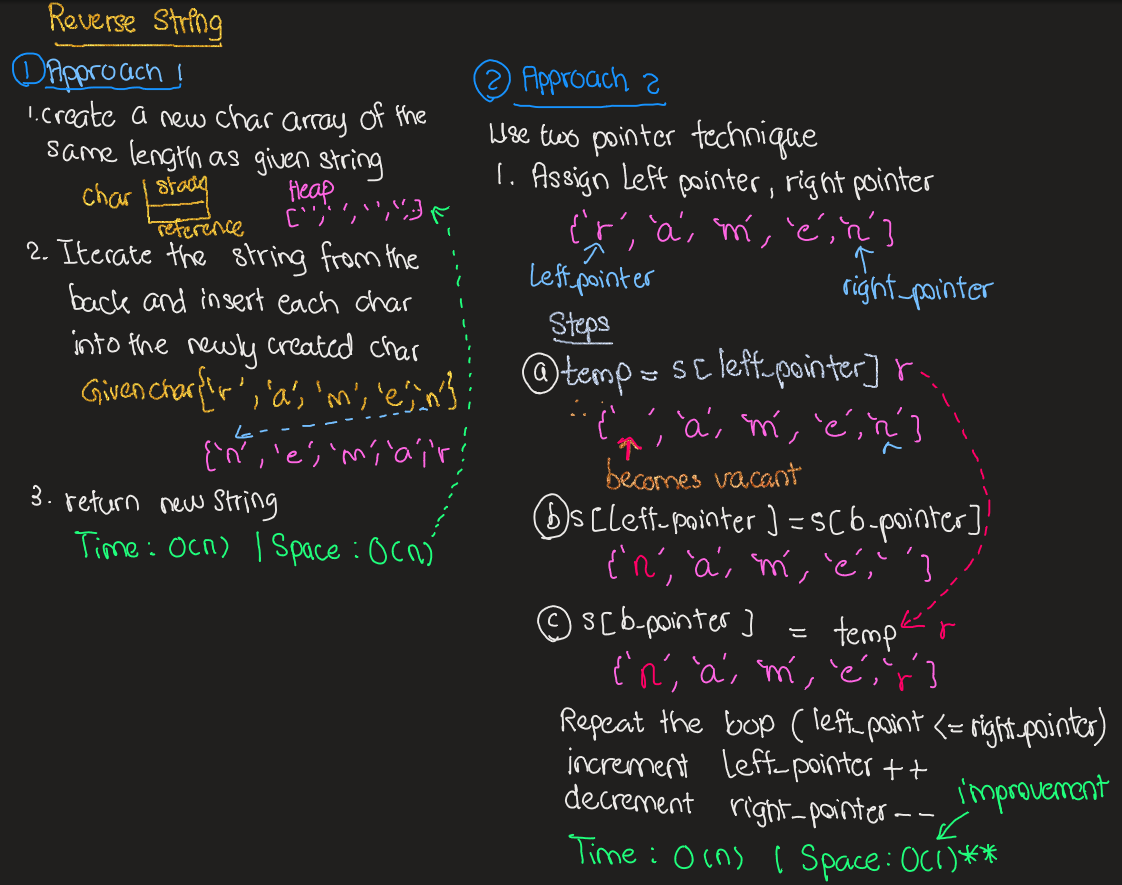 Reverse String
① Approach 1
1. create a new char array of the
same length as given string
char
stack
reference
Heap
[' ',' ', ' ', ' ', ' ']
2. Iterate the string from the
back and insert each char
into the newly created char
Given char {'r', 'a', 'm', 'e', 'n'}
{'n', 'e', 'm', 'a', 'r
3. return new String
Time : O(n) | Space : O(n)
② Approach 2
Use two pointer technique
1. Assign Left pointer, right pointer
{'r', 'a', 'm', 'e', 'n'}
left_pointer
right_pointer
Steps
ⓐ temp = s[left_pointer] r
∴ {' ', 'a', 'm', 'e', 'n'}
becomes vacant
ⓑ s[left_pointer] = s[b_pointer]
{'n', 'a', 'm', 'e', ' '}
ⓒ s[b_pointer] = temp r
{'n', 'a', 'm', 'e', 'r'}
Repeat the loop (left_point <= right_pointer)
increment left_pointer ++
decrement right_pointer --
improvement
Time : O(n) | Space : O(1)**